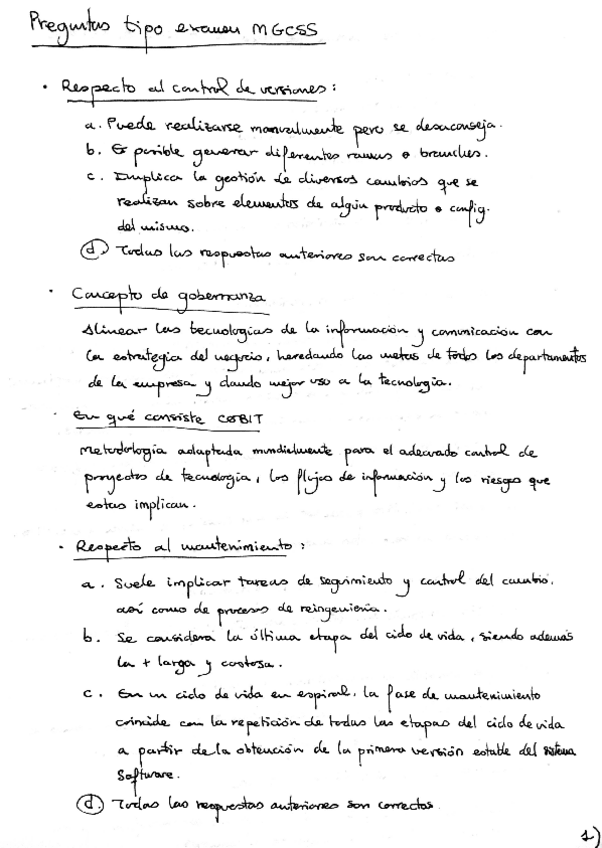 Preguntas tipo examen MGCSS
· Respecto al control de versiones:
a. Puede realizarse manualmente pero se desaconseja.
b. Es posible generar diferentes ramas o branches.
c. Implica la gestión de diversos cambios que se
realizan sobre elementos de algún producto o config.
del mismo.
d. Todas las respuestas anteriores son correctas
· Concepto de gobernanza
Alinear las tecnologías de la información y comunicación con
la estrategia del negocio, heredando las metas de todos los departamentos
de la empresa y dando mejor uso a la tecnología.
· En qué consiste COBIT
Metodología adaptada mundialmente para el adecuado control de
proyectos de tecnología, los flujos de información y los riesgos que
estas implican.
· Respecto al mantenimiento:
a. Suele implicar tareas de seguimiento y control del cambio,
así como de procesos de reingeniería.
b. Se considera la última etapa del ciclo de vida, siendo además
la + larga y costosa.
c. En un ciclo de vida en espiral, la fase de mantenimiento
coincide con la repetición de todas las etapas del ciclo de vida
a partir de la obtención de la primera versión estable del sistema
Software.
d. Todas las respuestas anteriores son correctas
1)